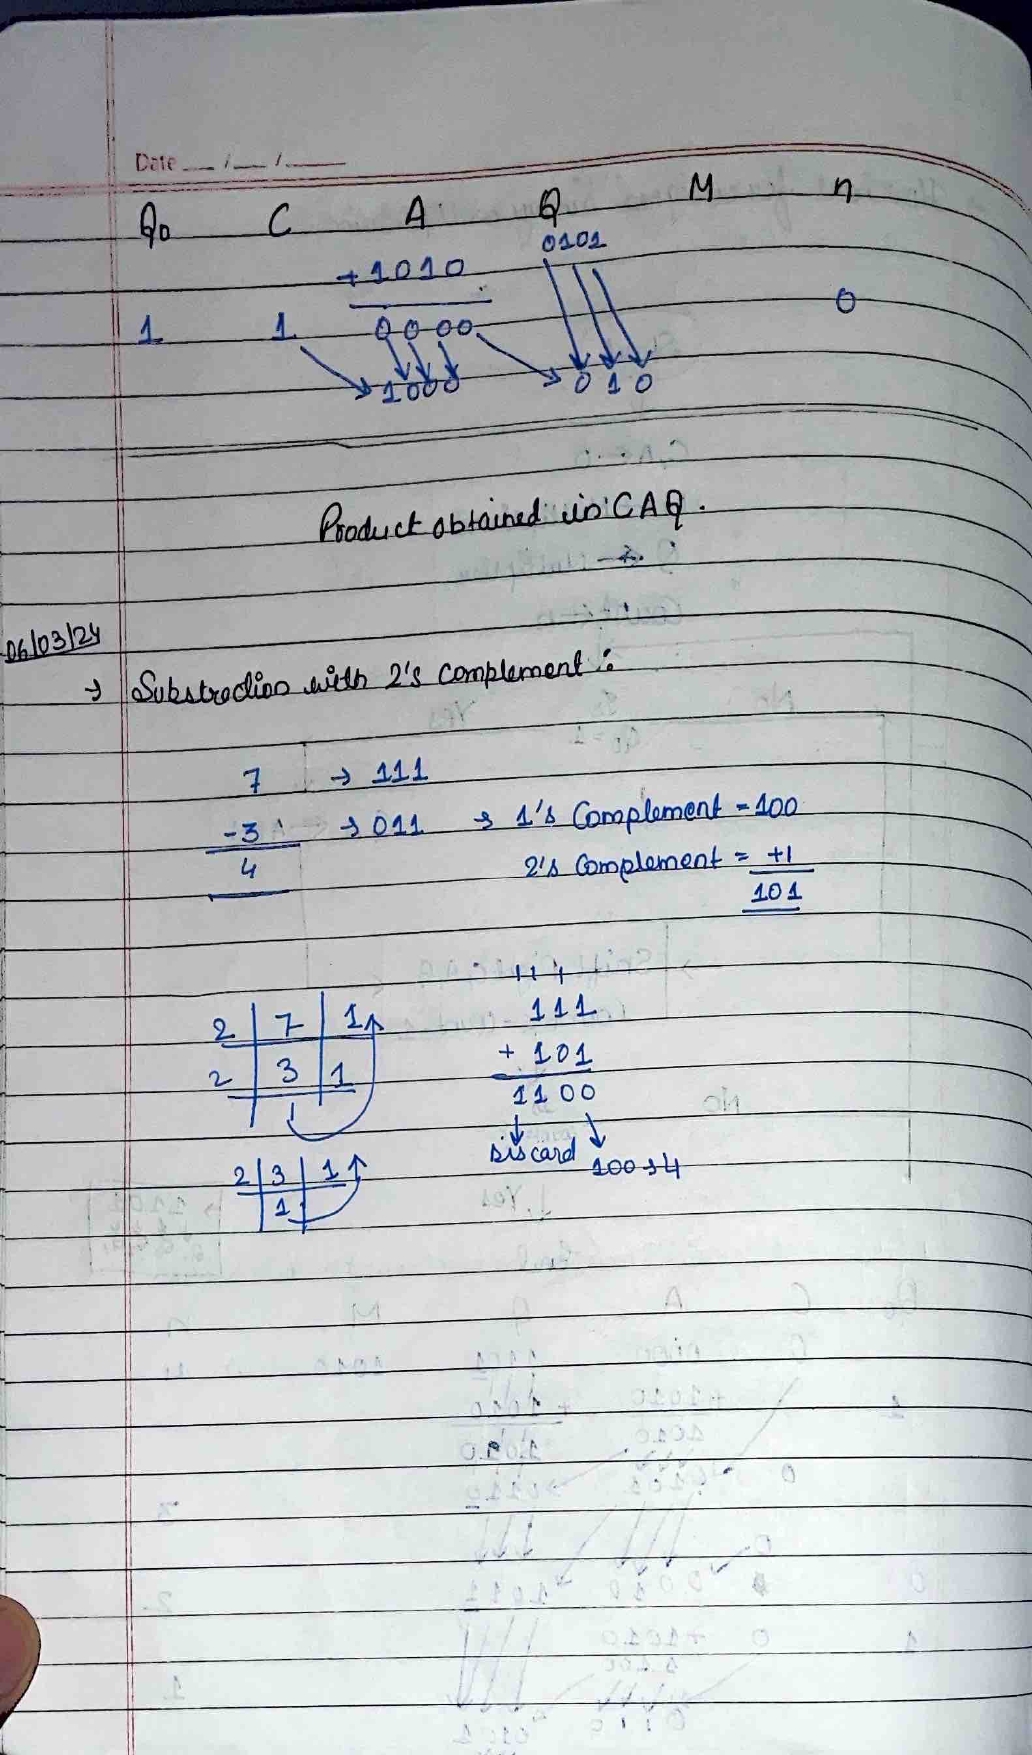 Date __/__/____
Q0 C A Q M n
0101
+1010
1 1 0000 0
1000 010
Product obtained in CAQ.
06/03/24
→ Substraction with 2's complement :
7 → 111
-3 → 011 → 1's Complement = 100
4 2's Complement = +1
101
111
2 7 1 111
2 3 1 + 101
1100
Discard 100→4
2 3 1
1